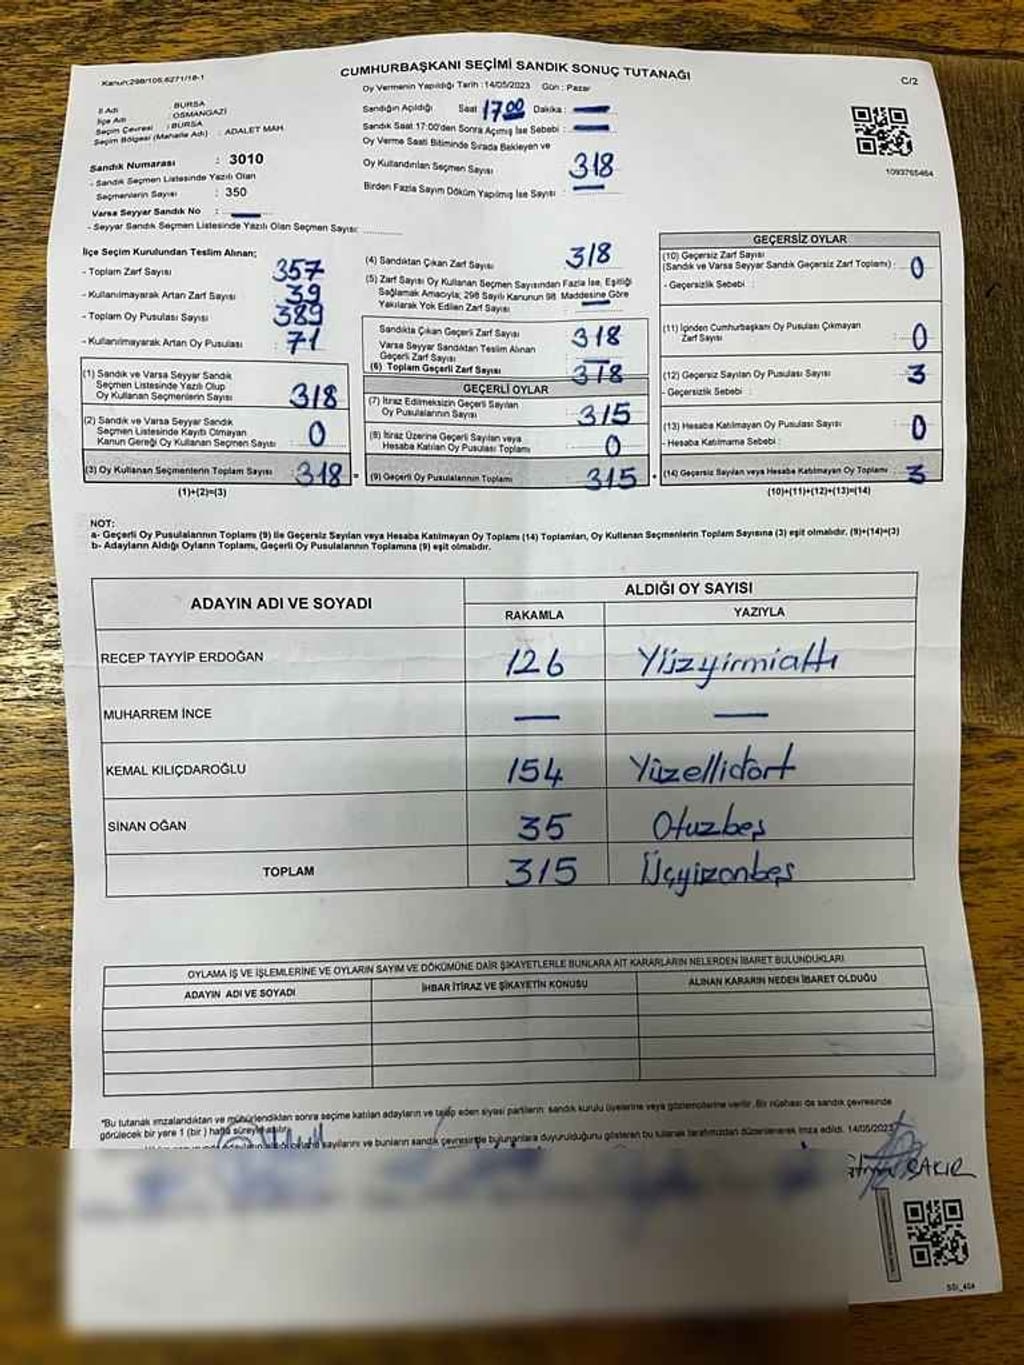 Kanun:298/105,6271/18-1
CUMHURBAŞKANI SEÇİMİ SANDIK SONUÇ TUTANAĞI
C/2
Oy Vermenin Yapıldığı Tarih : 14/05/2023 Gün : Pazar
İl Adı : BURSA
İlçe Adı : OSMANGAZİ
Seçim Çevresi : BURSA
Seçim Bölgesi (Mahalle Adı) : ADALET MAH.
Sandığın Açıldığı Saat : 17.00 Dakika : —
Sandık Saat 17:00'den Sonra Açılmış İse Sebebi : —
Oy Verme Saati Bitiminde Sırada Bekleyen ve
Oy Kullandırılan Seçmen Sayısı : 318
Birden Fazla Sayım Döküm Yapılmış İse Sayısı : —
1093765464
Sandık Numarası : 3010
- Sandık Seçmen Listesinde Yazılı Olan
Seçmenlerin Sayısı : 350
Varsa Seyyar Sandık No : —
- Seyyar Sandık Seçmen Listesinde Yazılı Olan Seçmen Sayısı: ............
İlçe Seçim Kurulundan Teslim Alınan;
- Toplam Zarf Sayısı : 357
- Kullanılmayarak Artan Zarf Sayısı : 39
- Toplam Oy Pusulası Sayısı : 389
- Kullanılmayarak Artan Oy Pusulası : 71
(1) Sandık ve Varsa Seyyar Sandık
Seçmen Listesinde Yazılı Olup
Oy Kullanan Seçmenlerin Sayısı : 318
(2) Sandık ve Varsa Seyyar Sandık
Seçmen Listesinde Kayıtlı Olmayan
Kanun Gereği Oy Kullanan Seçmen Sayısı : 0
(3) Oy Kullanan Seçmenlerin Toplam Sayısı : 318 =
(1)+(2)=(3)
(4) Sandıktan Çıkan Zarf Sayısı : 318
(5) Zarf Sayısı Oy Kullanan Seçmen Sayısından Fazla İse, Eşitliği
Sağlamak Amacıyla; 298 Sayılı Kanunun 98. Maddesine Göre
Yakılarak Yok Edilen Zarf Sayısı : —
Sandıkta Çıkan Geçerli Zarf Sayısı : 318
Varsa Seyyar Sandıktan Teslim Alınan
Geçerli Zarf Sayısı : —
(6) Toplam Geçerli Zarf Sayısı : 318
GEÇERLİ OYLAR
(7) İtiraz Edilmeksizin Geçerli Sayılan
Oy Pusulalarının Sayısı : 315
(8) İtiraz Üzerine Geçerli Sayılan veya
Hesaba Katılan Oy Pusulası Toplamı : 0
(9) Geçerli Oy Pusulalarının Toplamı : 315 +
GEÇERSİZ OYLAR
(10) Geçersiz Zarf Sayısı
(Sandık ve Varsa Seyyar Sandık Geçersiz Zarf Toplamı) : 0
- Geçersizlik Sebebi :
(11) İçinden Cumhurbaşkanı Oy Pusulası Çıkmayan
Zarf Sayısı : 0
(12) Geçersiz Sayılan Oy Pusulası Sayısı : 3
- Geçersizlik Sebebi :
(13) Hesaba Katılmayan Oy Pusulası Sayısı : 0
- Hesaba Katılmama Sebebi :
(14) Geçersiz Sayılan veya Hesaba Katılmayan Oy Toplamı : 3
(10)+(11)+(12)+(13)=(14)
NOT:
a- Geçerli Oy Pusulalarının Toplamı (9) ile Geçersiz Sayılan veya Hesaba Katılmayan Oy Toplamı (14) Toplamları, Oy Kullanan Seçmenlerin Toplam Sayısına (3) eşit olmalıdır. (9)+(14)=(3)
b- Adayların Aldığı Oyların Toplamı, Geçerli Oy Pusulalarının Toplamına (9) eşit olmalıdır.
ADAYIN ADI VE SOYADI
ALDIĞI OY SAYISI
RAKAMLA YAZIYLA
RECEP TAYYİP ERDOĞAN 126 Yüzyirmialtı
MUHARREM İNCE — —
KEMAL KILIÇDAROĞLU 154 Yüzellidört
SİNAN OĞAN 35 Otuzbeş
TOPLAM 315 Üçyüzonbeş
OYLAMA İŞ VE İŞLEMLERİNE VE OYLARIN SAYIM VE DÖKÜMÜNE DAİR ŞİKAYETLERLE BUNLARA AİT KARARLARIN NELERDEN İBARET BULUNDUKLARI
ADAYIN ADI VE SOYADI İHBAR İTİRAZ VE ŞİKAYETİN KONUSU ALINAN KARARIN NEDEN İBARET OLDUĞU
*Bu tutanak imzalandıktan ve mühürlendikten sonra seçime katılan adayların ve talep eden siyasi partilerin sandık kurulu üyelerine veya gözlemcilerine verilir. Bir nüshası da sandık çevresinde
görülecek bir yere 1 (bir) hafta süreyle asılır.
sayılarını ve bunların sandık çevresinde bulunanlara duyurulduğunu gösteren bu tutanak tarafımızdan düzenlenerek imza edildi. 14/05/2023
ÇAKIR